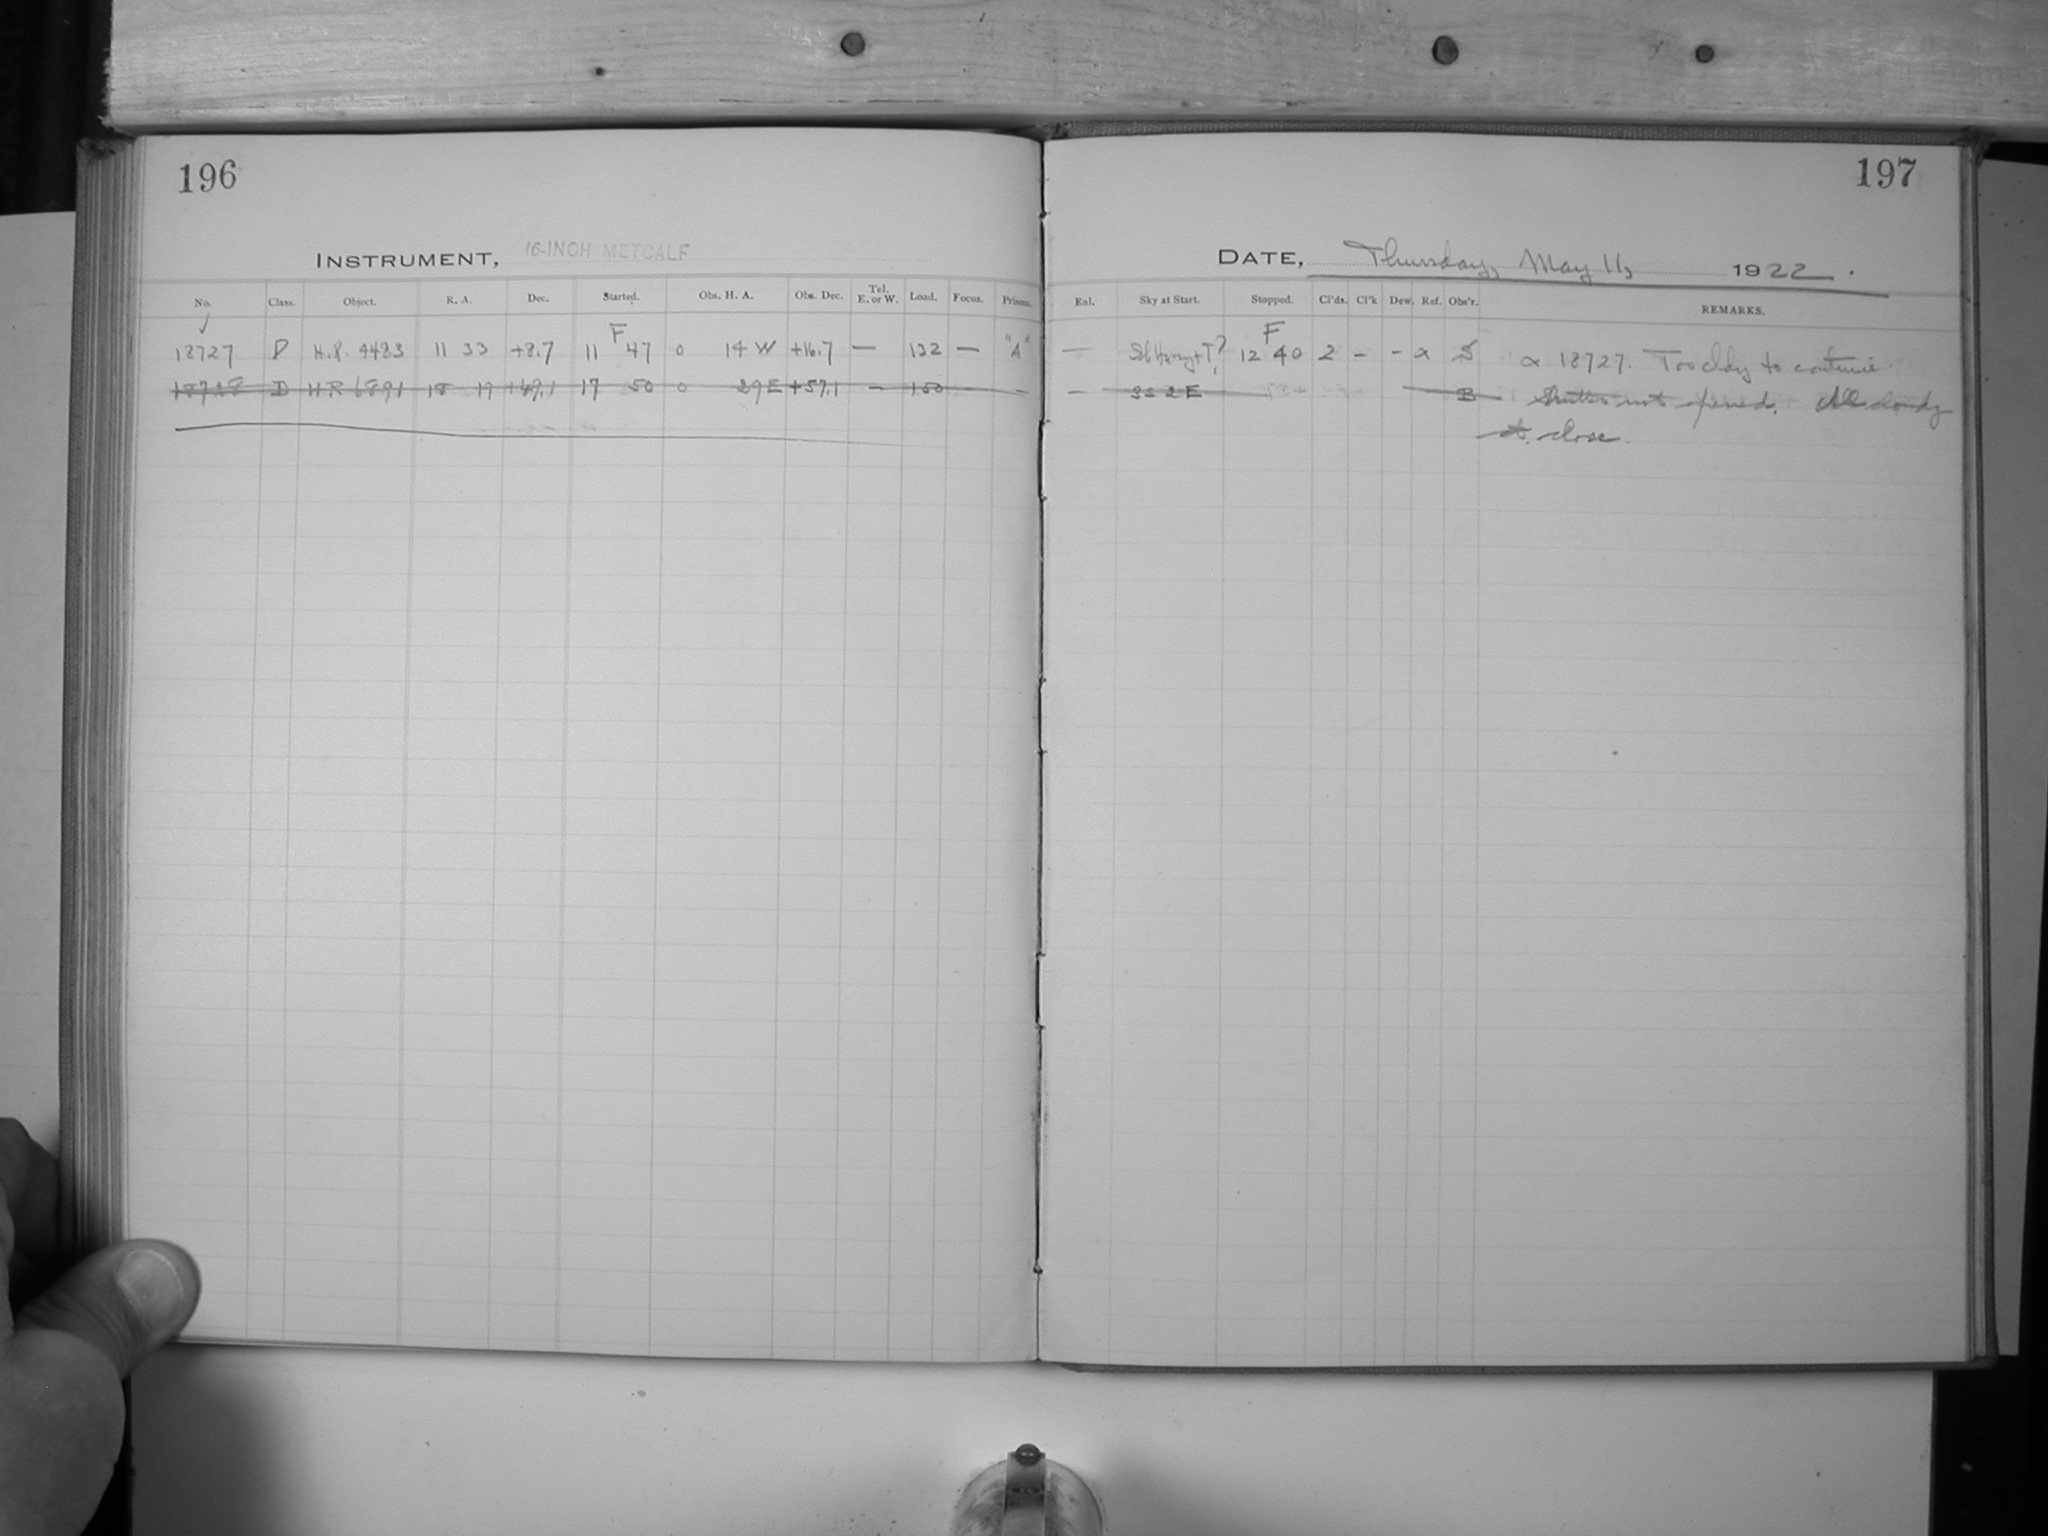 196
INSTRUMENT, 16-INCH METCALF
No. Class. Object. R. A. Dec. Started. Obs. H. A. Obs. Dec. Tel. E. or W. Load. Focus. Prisms.
✓ F
18727 D H.P. 4483 11 33 +8.7 11 47 0 14 W +16.7 — 132 — "A"
18728 D H.R 6891 18 19 +49.1 17 50 0 29 E +57.1 – 150 – –
197
DATE, Thursday, May 11, 1922.
Enl. Sky at Start. Stopped. Cl'ds. Cl'k Dew. Ref. Obs'r. REMARKS.
F
— 12 40 2 – – α S α 18727. Too cldy to continue.
– B Shutter not opened. All cloudy
at close.